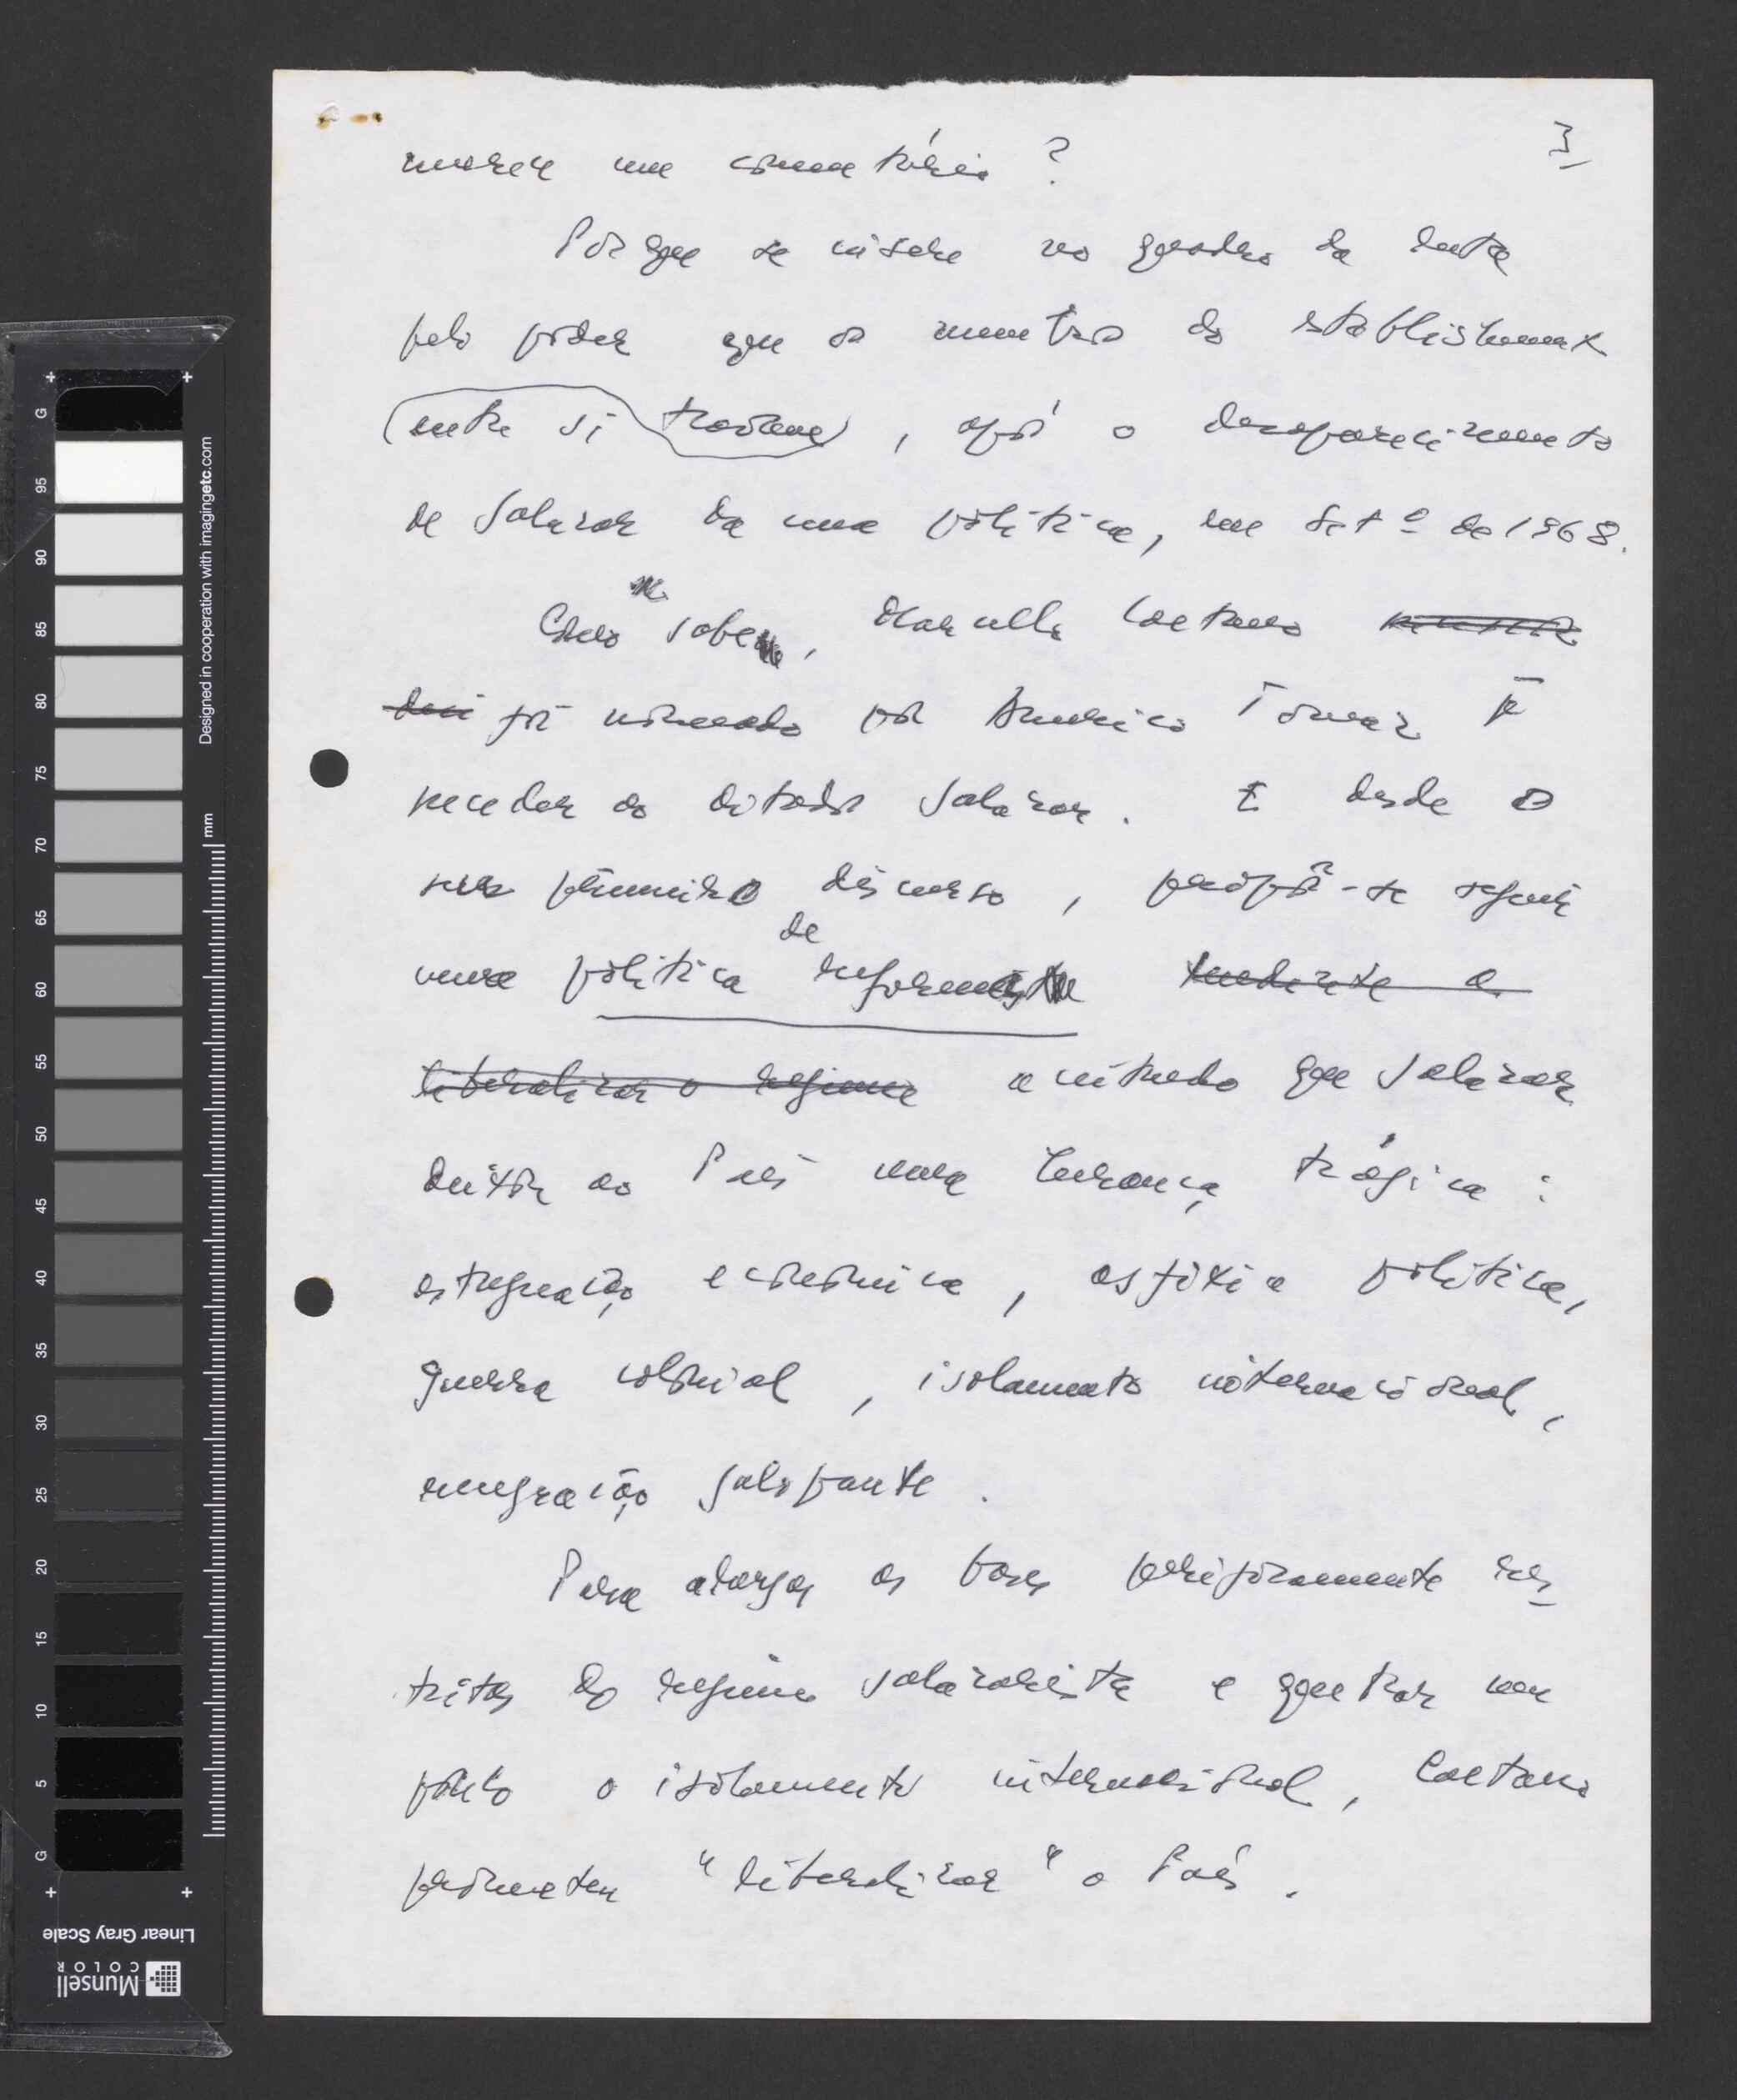 3
merece um comentário?
Porque se insere no quadro da luta
pelo poder que os membros do establishment
entre si travavam, após o desaparecimento
de Salazar da cena política, em Setº de 1968.
Como sabem, Marcello Caetano
foi nomeado por Américo Tomaz p/
suceder ao ditador Salazar. E desde o
seu primeiro discurso, propôs-se seguir
uma política de reformas
liberalizar o regime a ... que Salazar
deixou ao País uma herança trágica:
estagnação económica, asfixia política,
guerra colonial, isolamento internacional,
emigração galopante.
Para alargar as bases perigosamente res
tritas do regime salazarista e quebrar um
pouco o isolamento internacional, Caetano
prometeu "liberalizar" o País.
G
95
90
85
80
75
70
65
60
55
50
45
40
35
30
25
20
15
10
5
G
mm
Designed in cooperation with imagingetc.com
Linear Gray Scale
Munsell
COLOR